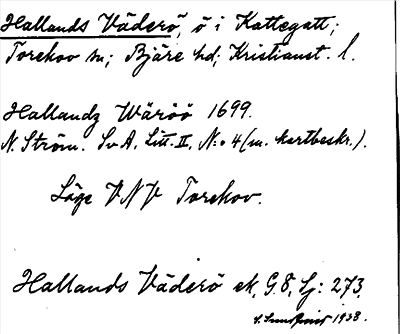 Hallands Väderö, ö i Kattegatt;
Torekov sn; Bjäre hd; Kristianst. l.
Hallandz Wäröö 1699.
N. Ström. Sv A. Litt. II, N:o 4 (m. kartbeskr.).
Läge VNV Torekov.
Hallands Väderö ek. G.8, Lj: 273.
S. Sundqvist 1938.